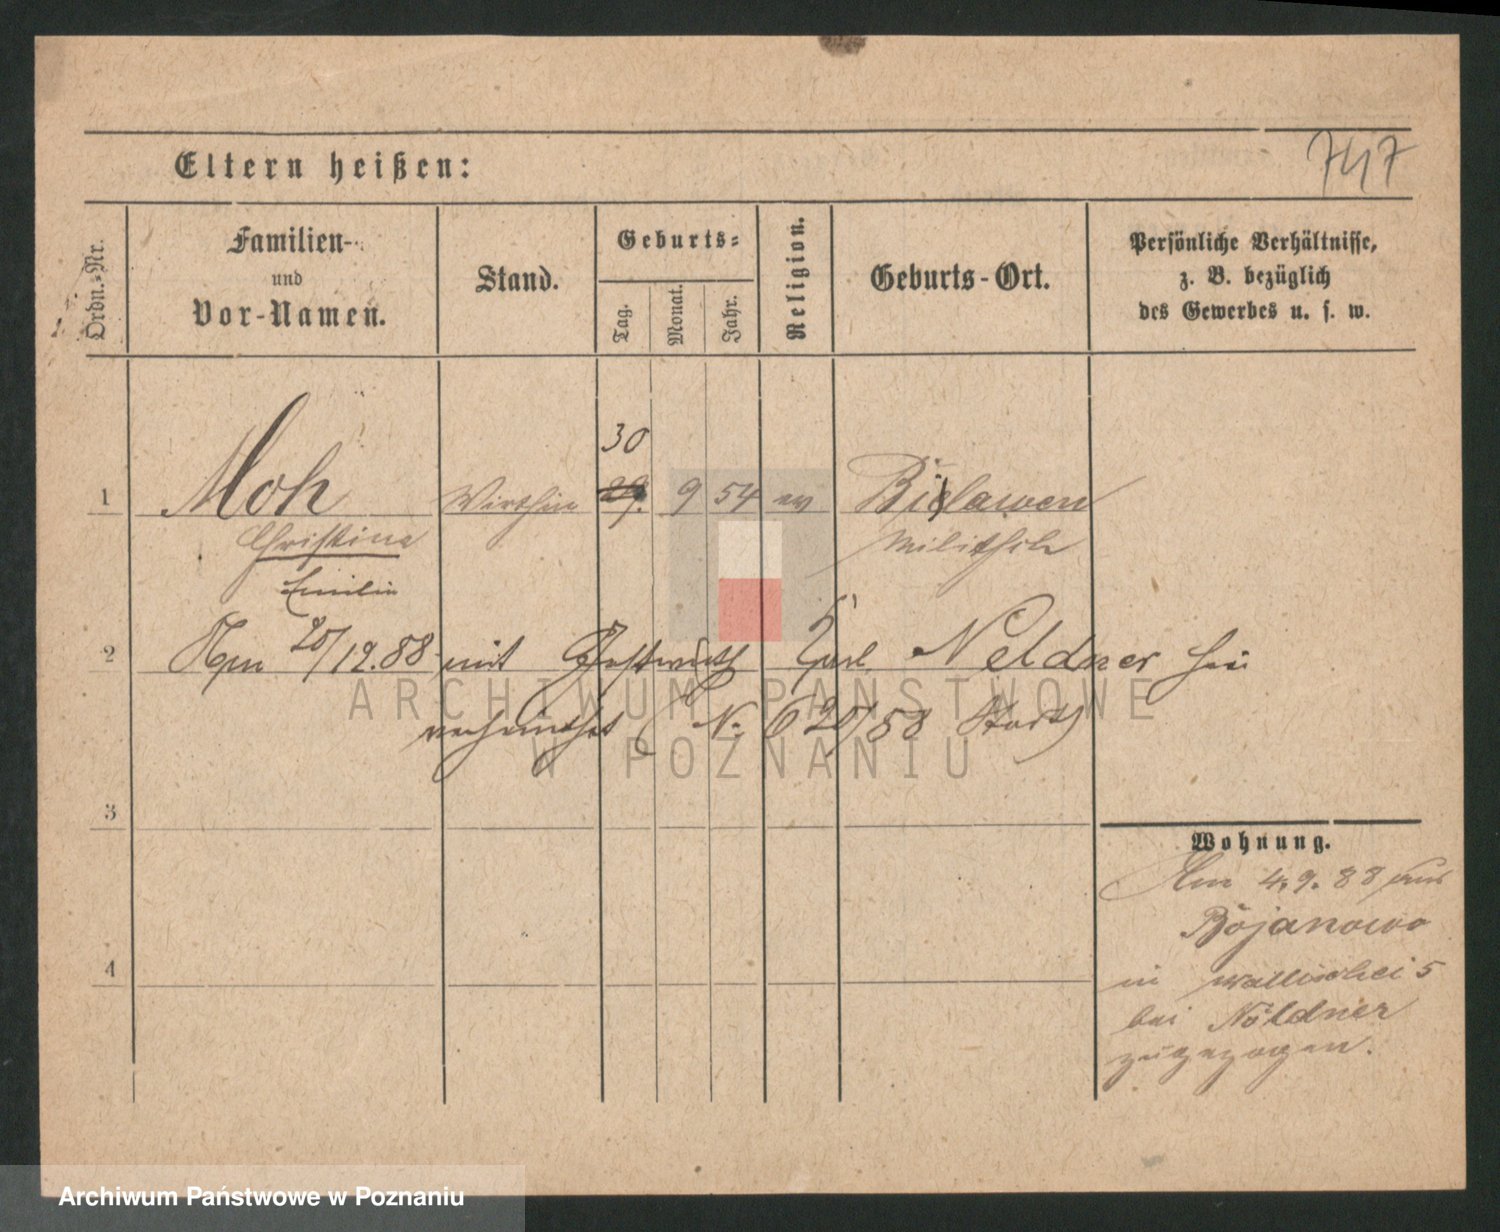 747
Eltern heißen:
Ordn.-Nr.
Familien-
und
Vor-Namen.
Stand.
Geburts-
Tag.
Monat.
Jahr.
Religion.
Geburts-Ort.
Persönliche Verhältnisse,
z. B. bezüglich
des Gewerbes u. s. w.
30
1 Moh Wirthin 29. 9 54 ev Bielawen
Christine Militsch
Emilie
2 Am 20/12.88 mit Gastwirth Karl Neldner hier
verheirathet (N. 620/88 Stadt)
3
Wohnung.
Am 4.9.88 aus
Bojanowo
4
in Wallischei 5
bei Nöldner
zugezogen.
ARCHIWUM PAŃSTWOWE
W POZNANIU
Archiwum Państwowe w Poznaniu